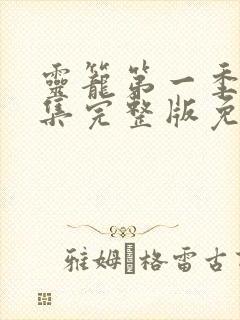 靈籠第一季
集完整版免
雅姆·格雷古